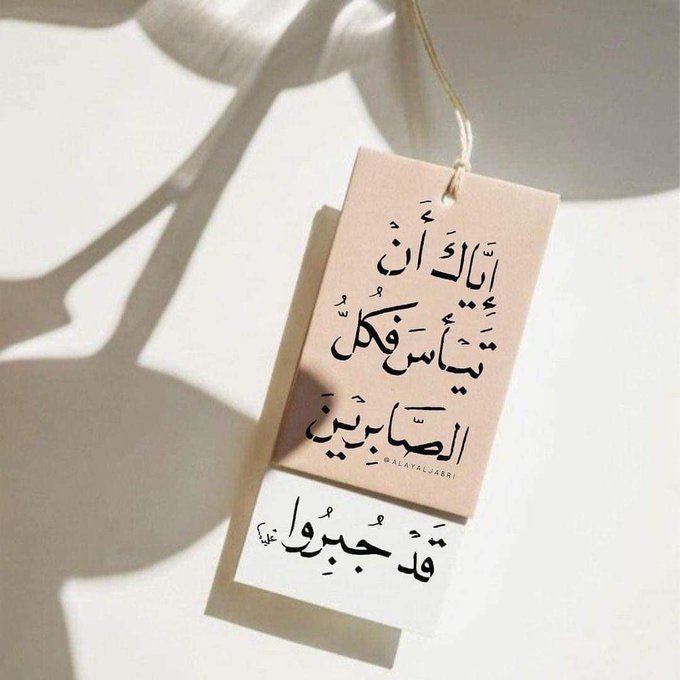 إِيَّاكَ أَنْ
تَيْأَسَ فَكُلُّ
الصَّابِرِيْنَ
@ALAYALJABRI
قَدْ جُبِرُوا